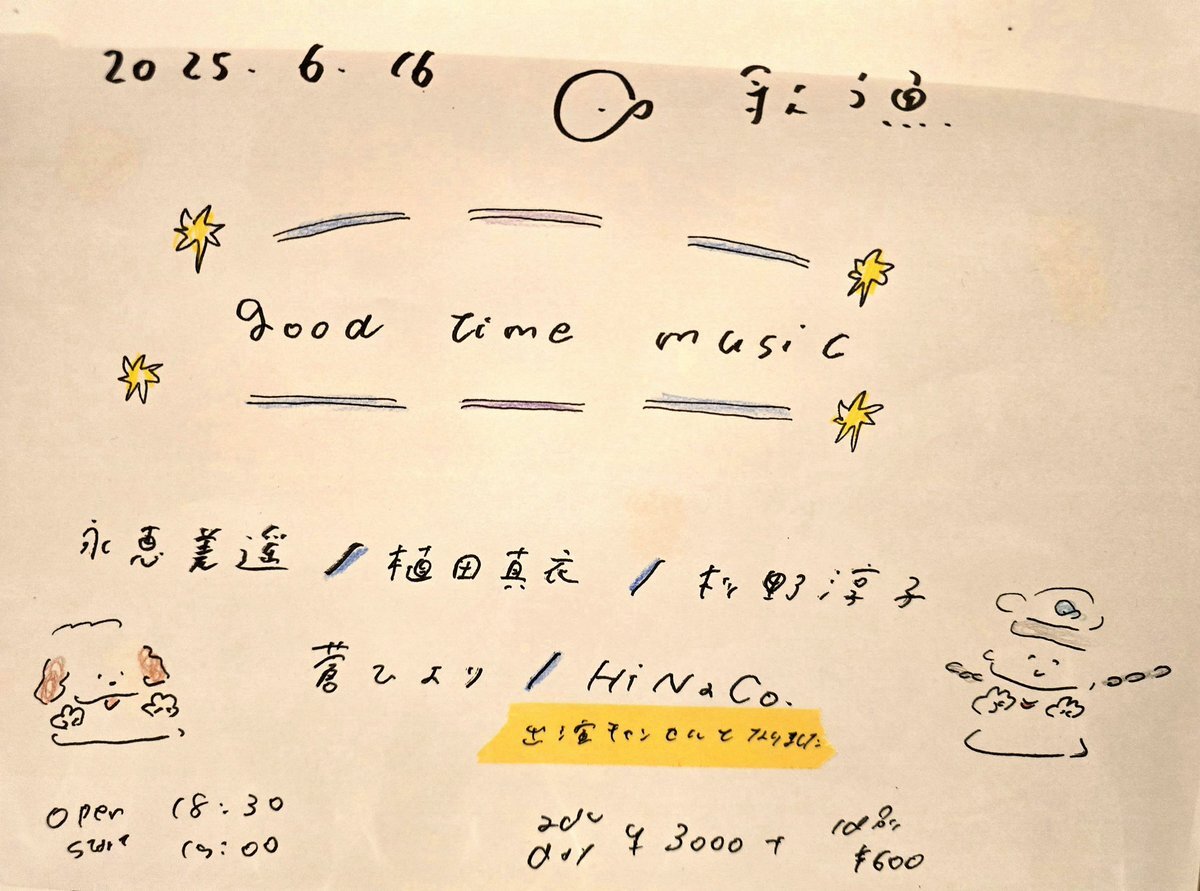 2025.6.16
good time music
永恵美遥 / 植田真衣 / 杉野淳子
蒼ひより / HiNaCo.
出演キャンセルとなりました
open 18:30
start 19:00
adv
day ¥3000 +
¥600